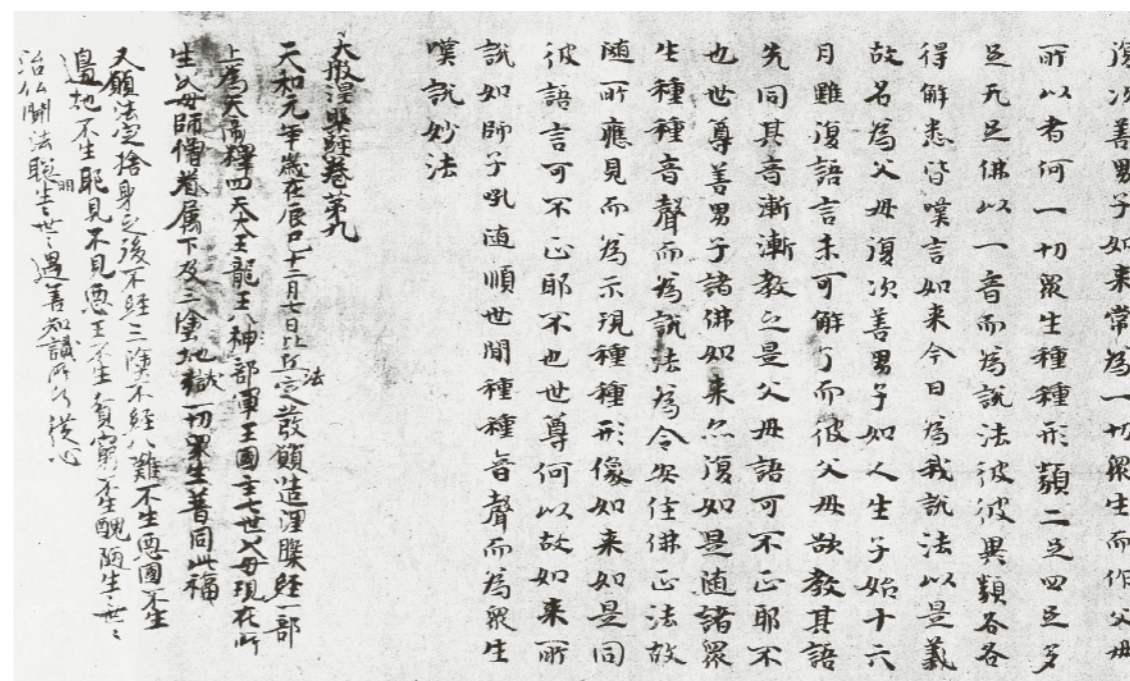 復次善男子如来常為一切衆生而作父母
所以者何一切衆生種種形類二足四足多
足无足佛以一音而為說法彼彼異類各各
得解悉皆嘆言如来今日為我說法以是義
故名為父母復次善男子如人生子始十六
月雖復語言未可解了而彼父母欲教其語
先同其音漸漸教之是父母語可不正耶不
也世尊善男子諸佛如来亦復如是随諸衆
生種種音聲而為說法為令安住佛正法故
随所應見而為示現種種形像如来如是同
彼語言可不正耶不也世尊何以故如来所
說如師子吼随順世間種種音聲而為衆生
嘆說妙法
大般涅槃經卷第九
天和元年歲在辰巳十二月七日比丘法定發願造涅槃經一部
上為天帝釋四天大王龍王八神部軍王國主七世父母現在所
生父母師僧眷属下及三塗地獄一切衆生普同此福
又願法定捨身之後不經三塗不經八難不生惡國不生
邊地不生耶見不見惡王不生貧窮不生醜陋生世〻
治仏聞法聡明生〻世〻遇善知識所行從心